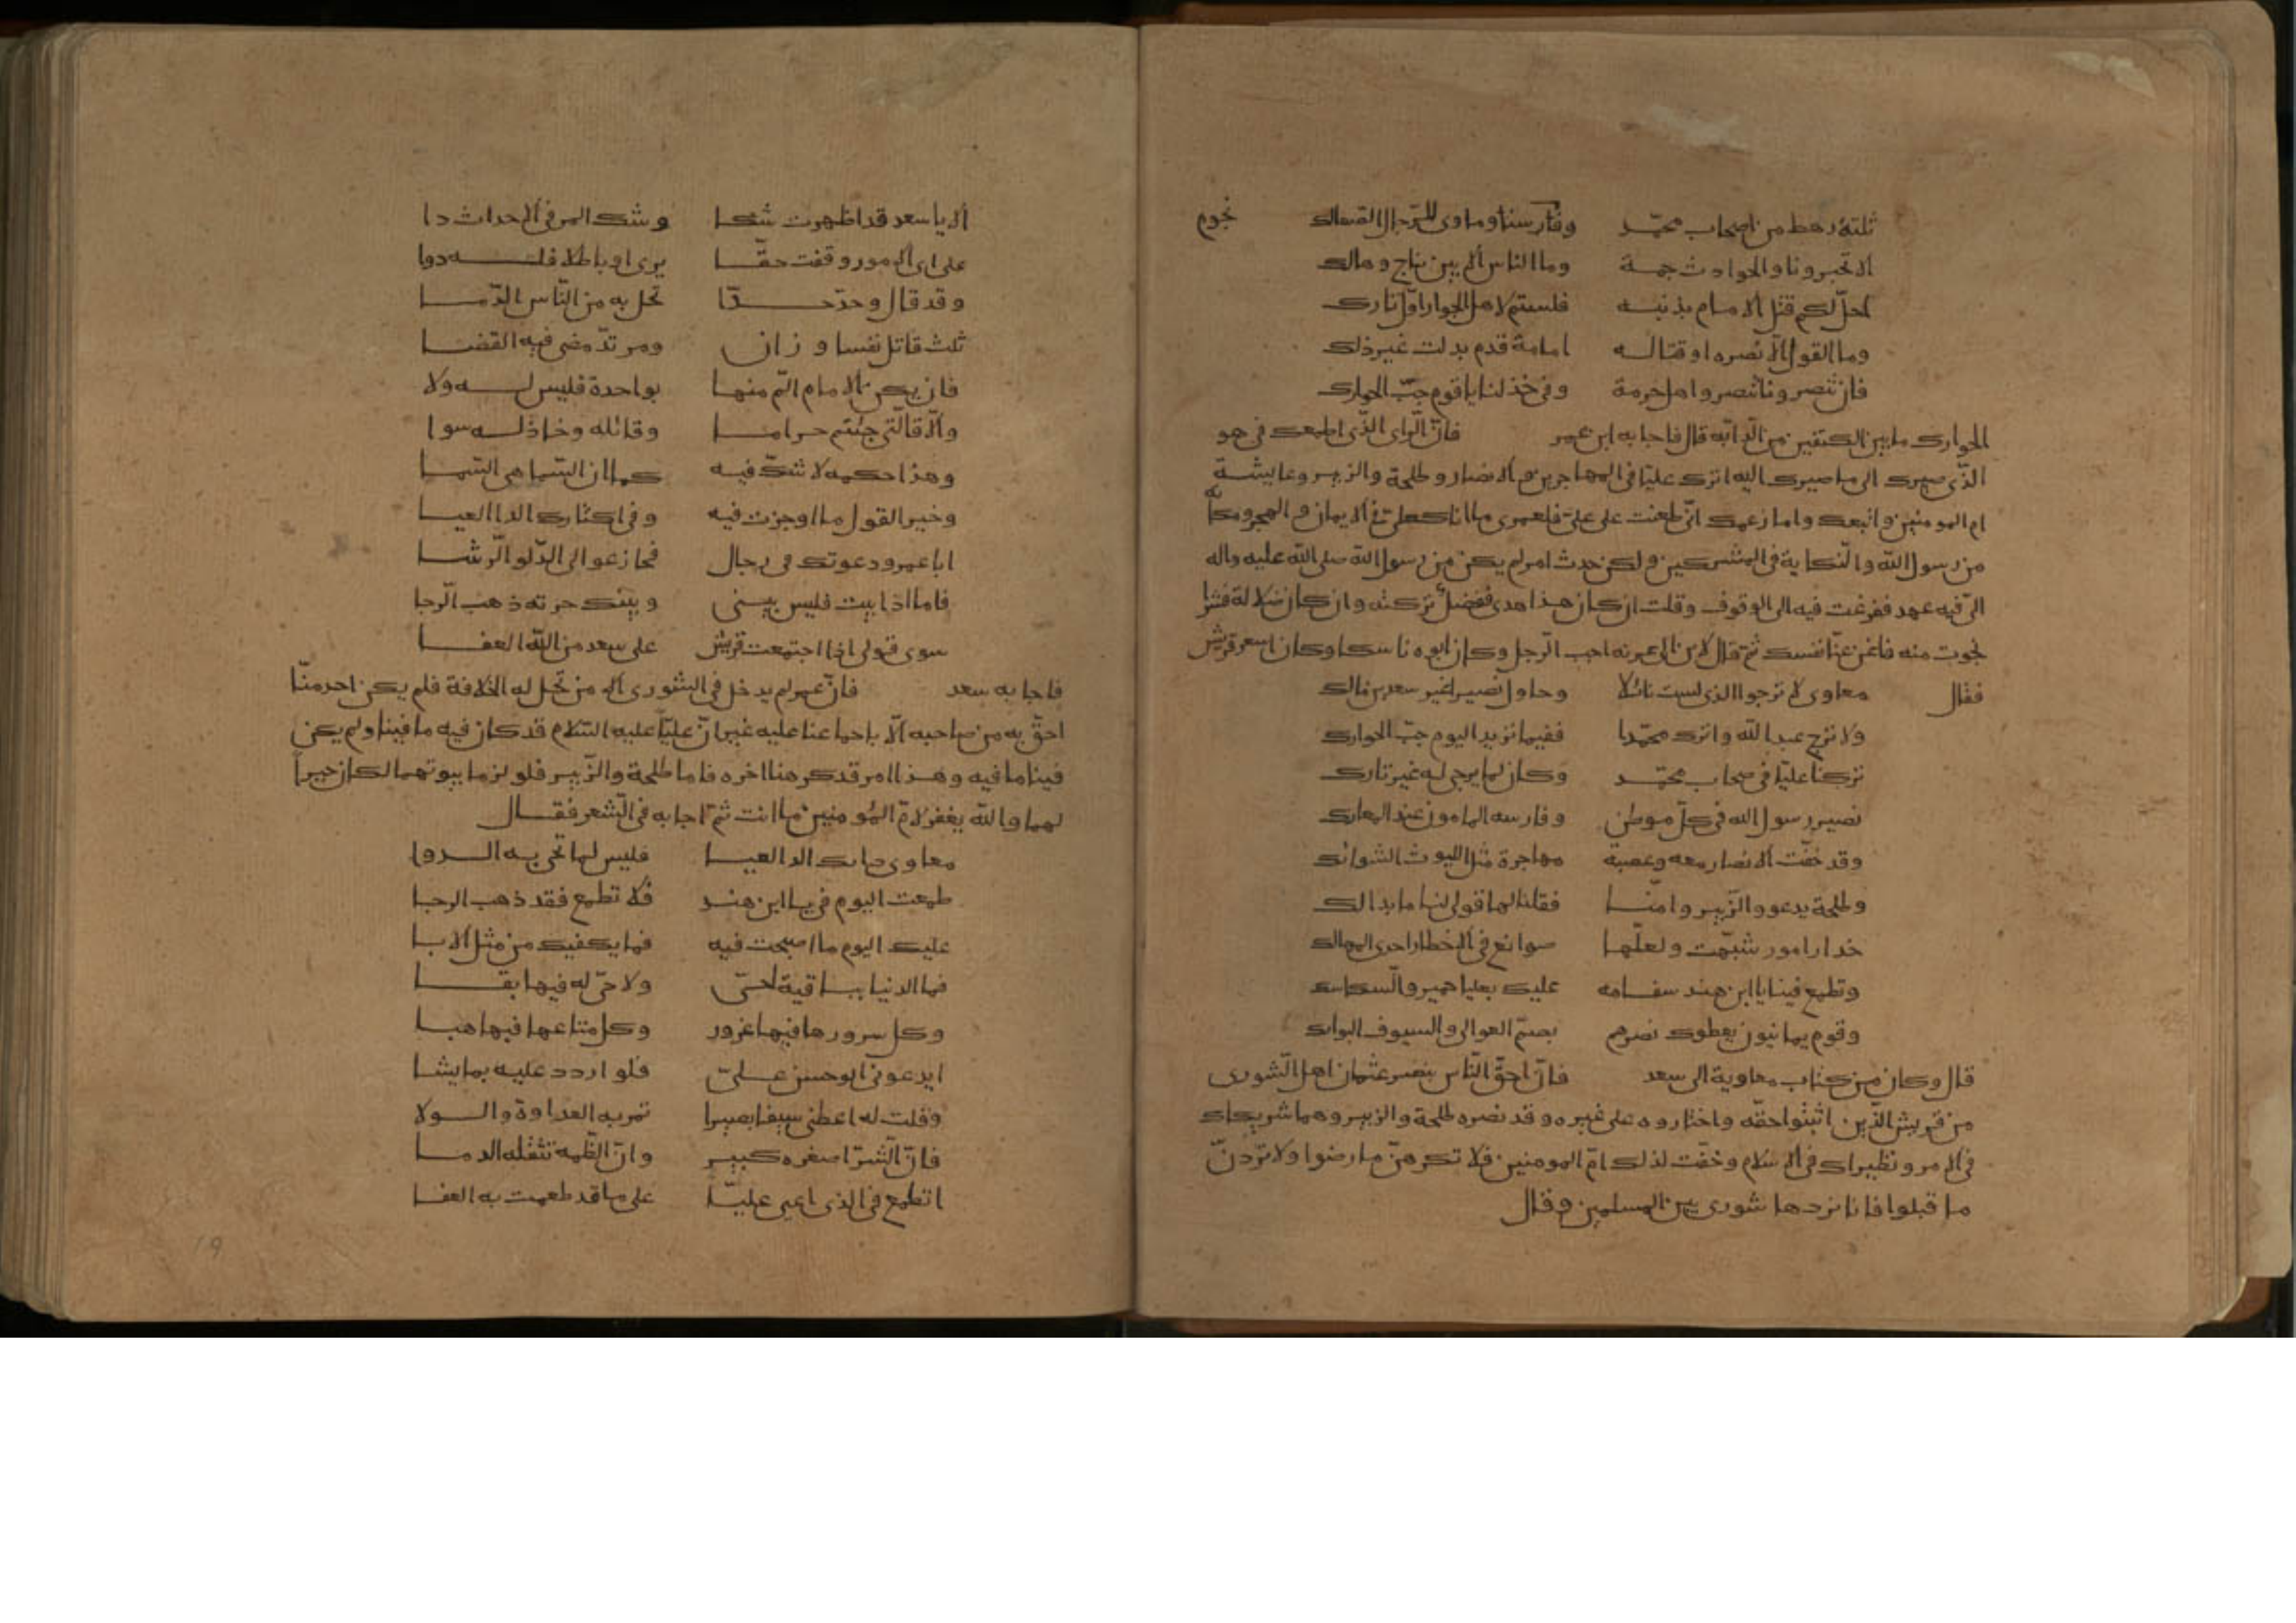 ثلثة رهط من اصحاب محمّد وفارسنا وماوى للرّجال
نجوم
الا تخبرونا والحوادث جمة وما الناس الا بين ناج وهالك
احلّ لكم قتل الامام بذنبه فلستم لاهل الجوار اوّل تارك
وما القول الّا نصره او قتاله امامة قدم بدلت غير ذلك
فان تنصرونا تنصروا اهل حرمة وفى خذلنا يا قوم جبّ الحوارك
الحوارك ما بين الكتفين من الدّابّه قال فاجابه ابن عمر فانّ الّراى الذّى اطمعك فى هو
الذّى صيرك الى ما صيرك اليه اترك عليّا فى المهاجرين و الانصار و طلحة والزبير وعايشة
ام المومنين واتبعك واما زعمك انّى طعنت على علىّ فلعمرى ما انا كعلىّ فى الايمان و الهجرة
من رسول الله والنّكاية فى المشركين ولكن حدث امر لم يكن من رسول الله صلى الله عليه واله
الىّ فيه عهد ففزعت فيه الى الوقوف وقلت ان كان هذا هدى ففضل تركته وان كان ضلالة فشرّا
نجوت منه فاغن عنّا نفسك ثم قال لابن ابى اجب الّرجل وكان ابوه ناسكا وكان اسعر قريش
فقال معاوى لا ترجوا الذى لست نائلا وحاول نصيرا غير سعد بن مالك
ولا ترج عبد الله واترك محمّدا ففيما تريد اليوم جبّ الحوارك
تركنا عليّا فى صحاب محمّد وكان لما يرجى له غير تارك
نصير رسول الله فى كلّ موطن وفارسه المامون عند المعارك
وقد خفّت الانصار معه وعصبة مهاجرة مثل الليوث الشوابك
وطلحة يدعو والزّبير وامنّا فقلنا لها قولى لنا ما بدا لك
حذار امور شبّهت ولعلّها موانع فى الاخطار احدى المهالك
وتطمع فينا يا ابن هند سفامه عليك بعليا حمير والّسكاسك
وقوم يمانيون يعطوك نصرهم بصمّ العوالى والسيوف البواتك
قال وكان من كتاب معاوية الى سعد فانّ احقّ النّاس بنصر عثمان اهل الّشورى
من قريش الذّين اثبتوا حقّه واختاروه على غيره وقد نصره طلحة والزبير وهما شريكاك
فى الامر ونظيراك فى الاسلام وخفّت لذلك امّ المومنين فلا تكرهنّ ما رضوا ولا تردنّ
ما قبلوا فانا نردها شورى بين المسلمين وقال
الا يا سعد قد اظهرت شكا وشك المر فى الاحداث دا
على اى الامور وقفت حقّا يرى او باطلا فله دوا
وقد قال وحدّ حدّا تحل به من النّاس الدّما
ثلث قاتل نفسا وزان ومرتدّ مضى فيه القضا
فان يكن الامام الّم منها بواحدة فليس له ولا
والّا فالّتى جئتم حراما وقاتله وخاذله سوا
وهذا حكمه لا شكّ فيه كما ان السّما هى السّما
وخير القول ما اوجزت فيه وفى اكثارك الدا العيا
ابا عمرو دعوتك فى رجال فجاز عوالى الدّلو الّرشا
فاما اذا ابيت فليس بينى وبينك حرته ذهب الّرجا
سوى قولى اذا اجتمعت قريش على سعد من الله العفا
فاجابه سعد فانّ عمر لم يدخل فى الشورى الا من تحل له الخلافة فلم يكن احد منّا
احقّ به من صاحبه الّا باجماعنا عليه غير انّ عليّا عليه السّلام قد كان فيه ما فينا ولم يكن
فينا ما فيه وهذا امر قد كرهنا اخره فاما طلحة والزّبير فلو لزما بيوتهما لكان خيراً
لهما والله يغفر لامّ المومنين ما اتت ثمّ اجابه فى الّشعر فقال
معاوى داىك الدا العيا فليس لما تحى به الدوا
طمعت اليوم فىّ يا ابن هند فلا تطمع فقد ذهب الرجا
عليك اليوم ما اصبحت فيه فما يكفيك من مثلى الابا
فما الدنيا بباقية لحىّ ولا حىّ له فيها بقا
وكل سرورها فيها غرور وكل متاعها فيها هبا
ايدعونى ابو حسن علىّ فلو اردد عليه بما يشا
وقلت له اعطنى سيفا بصيرا تمر به العداوة والولا
فانّ الّشرّ اصغره كبير وانّ الظّهر تثقله الدما
اتطمع فى الذى اعيى عليّا على ما قد طمعت به العفا
19